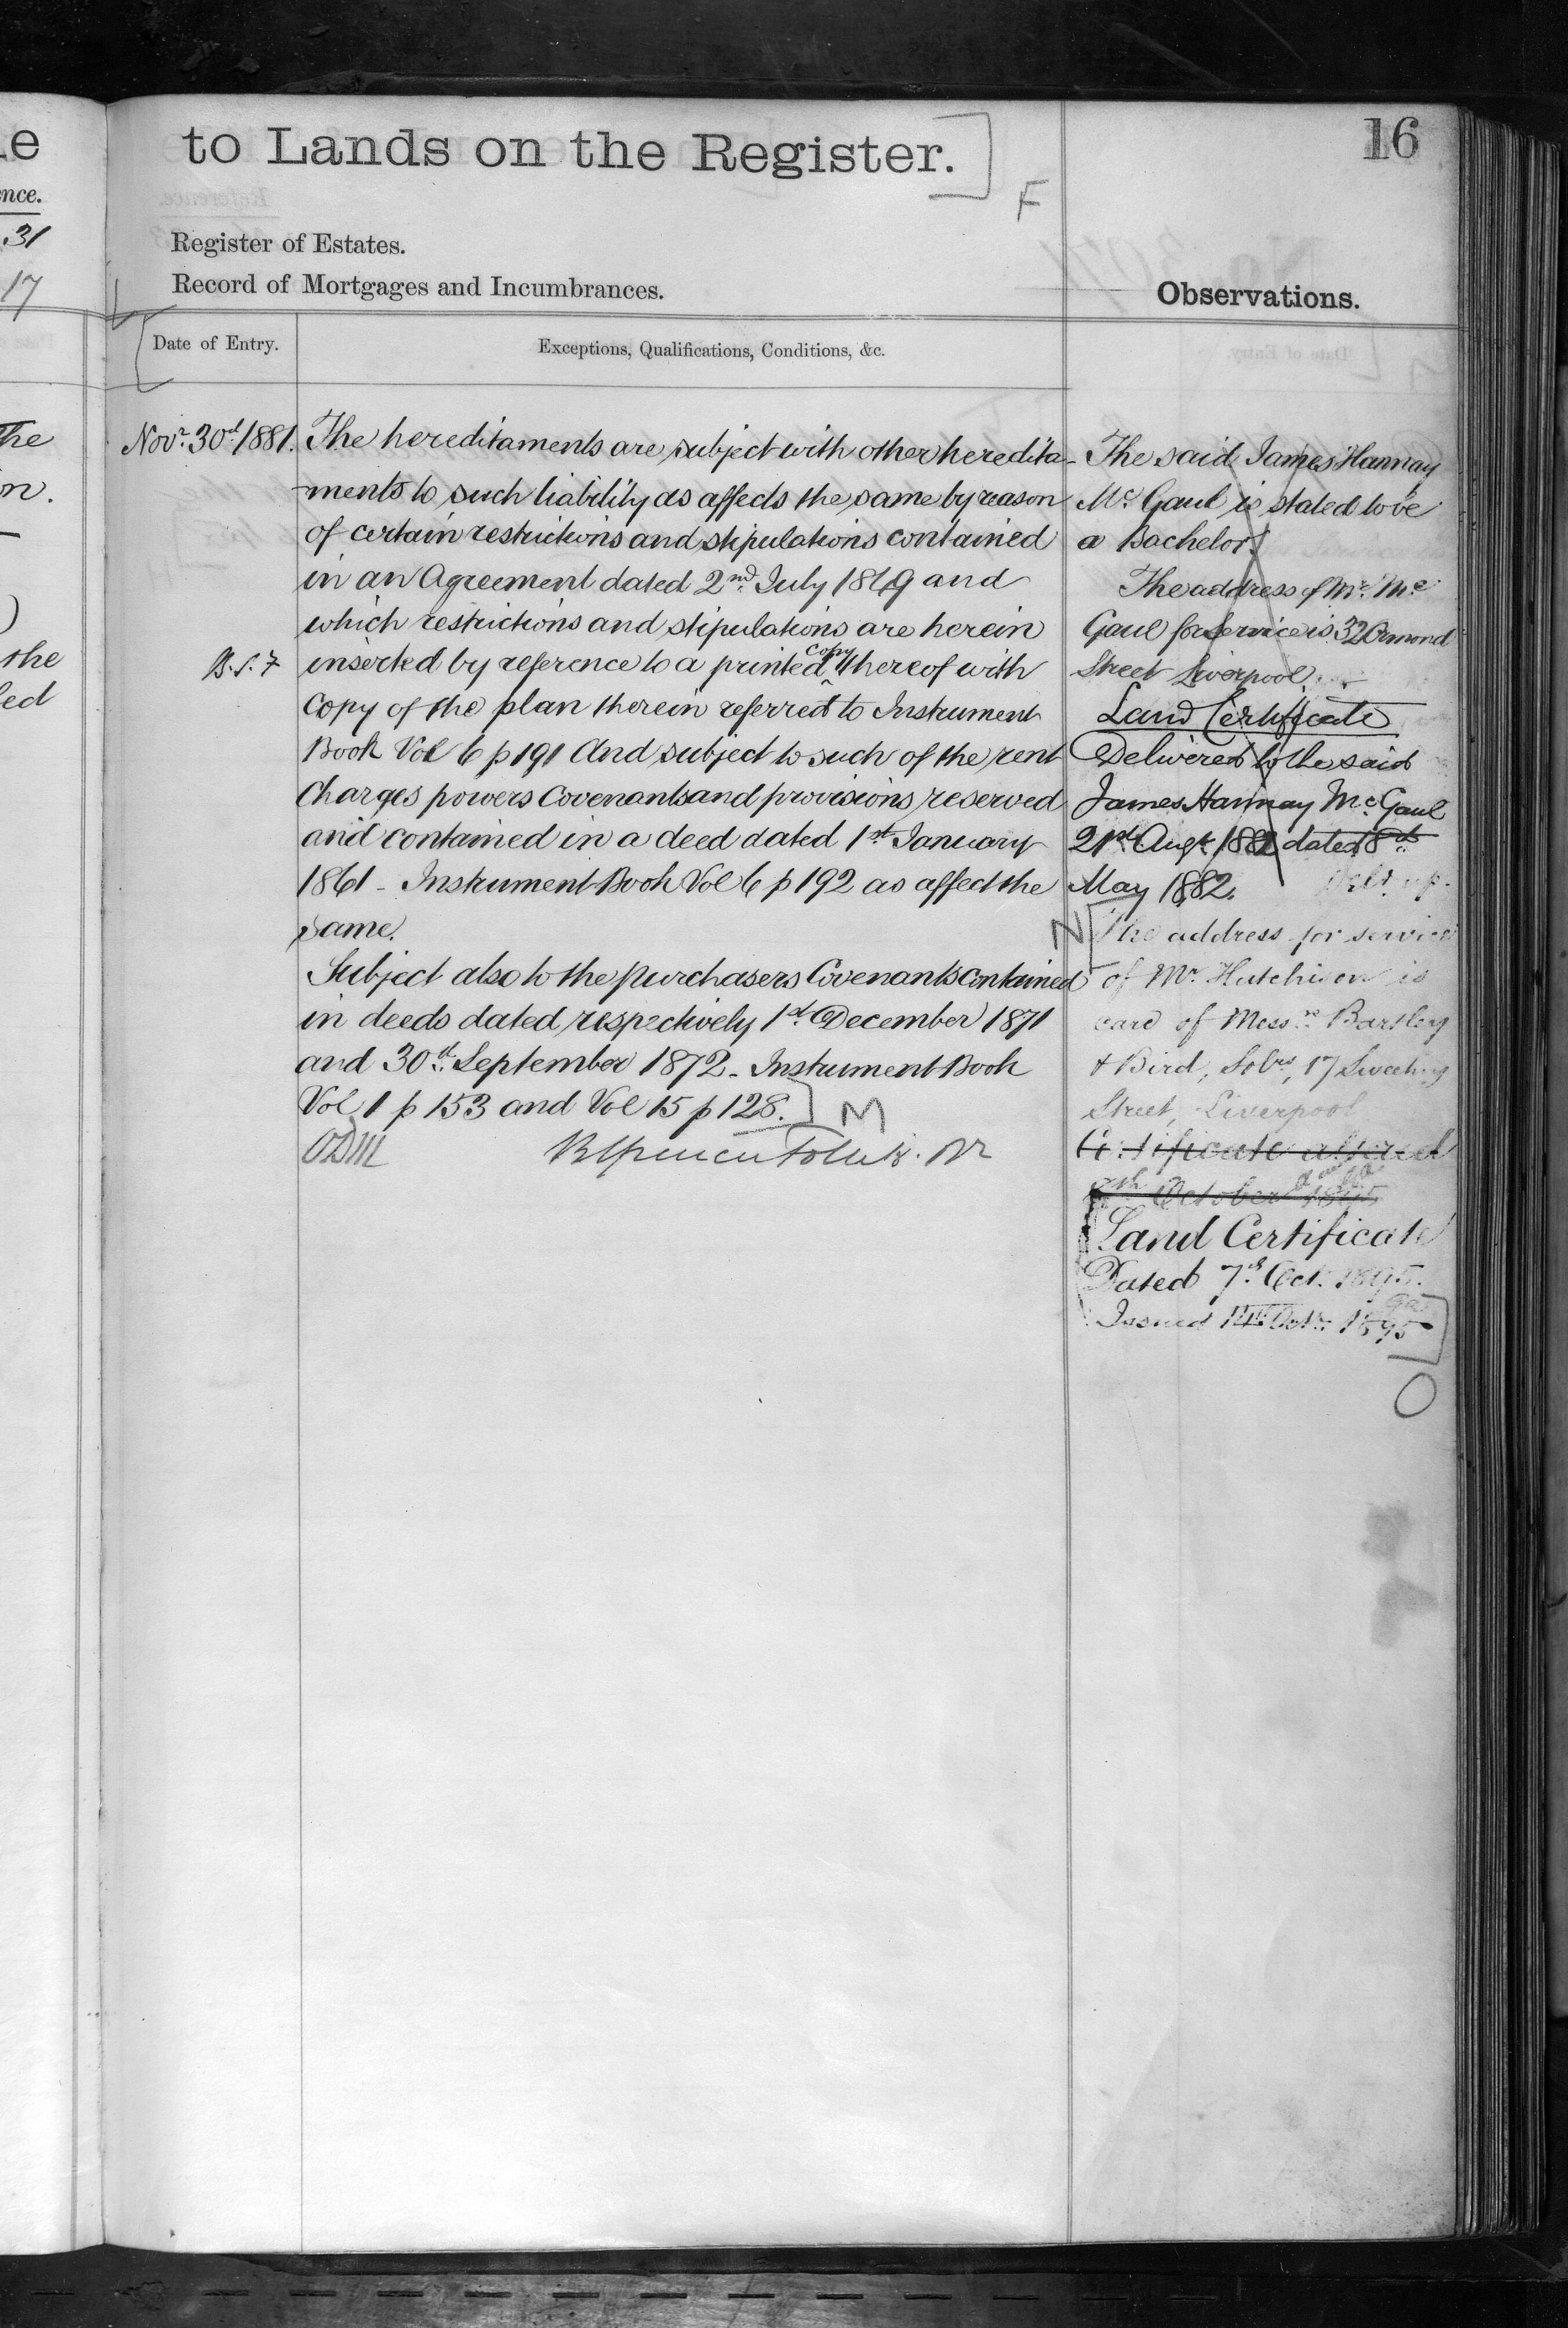 le
to Lands on the Register.
16
F
nce.
31
17
Register of Estates.
Record of Mortgages and Incumbrances.
Observations.
Date of Entry.
Exceptions, Qualifications, Conditions, &c.
The
on.
the
led
Novr. 30th 1881.
B.S. 7
The hereditaments are subject with other heredita-
ments to such liability as affects the same by reason
of certain restrictions and stipulations contained
in an Agreement dated 2nd July 1869 and
which restrictions and stipulations are herein
inserted by reference to a printed copy thereof with
Copy of the plan therein referred to Instrument
Book Vol 6 p 191 And subject to such of the rent
Charges powers Covenants and provisions reserved
and contained in a deed dated 1st January
1861 - Instrument Book Vol 6 p 192 as affect the
same.
Subject also to the purchasers Covenants contained
in deeds dated respectively 1st December 1871
and 30th September 1872 - Instrument Book
Vol 1 p 153 and Vol 15 p 128.
M
The said James Hannay
Mc Gaul is stated to be
a Bachelor.
The address of Mr. Mc
Gaul for service is 32 Ormond
Street Liverpool.
Land Certificate
Delivered to the said
James Hannay Mc Gaul
21st Augt. 1882 dated 8th
May 1882.
N
The address for service
of Mr. Hutchison is
care of Messrs Bartley
& Bird, Solrs, 17 Sweeting
Street, Liverpool
Certificate altered
7th October 1895
Land Certificate
Dated 7th Oct. 1895.
Issued 11th Octr. 1895
O